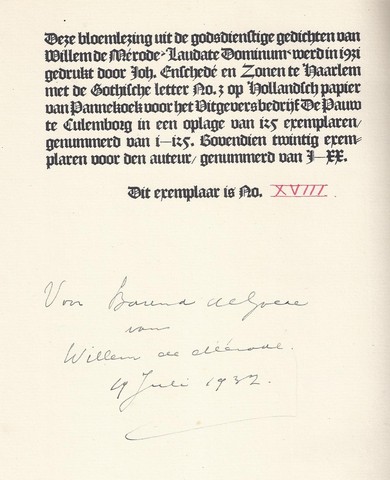 Deze bloemlezing uit de godsdienstige gedichten van
Willem de Mérode „Laudate Dominum” werd in 1931
gedrukt door Joh. Enschedé en Zonen te Haarlem
met de Gothische letter No. 3 op Hollandsch papier
van Pannekoek voor het Uitgeversbedrijf De Pauw
te Culemborg in een oplage van 125 exemplaren/
genummerd van 1–125. Bovendien twintig exem=
plaren voor den auteur/ genummerd van I–XX.
Dit exemplaar is No. XVIII
Voor Barend de Goede
van
Willem de Mérode.
19 Juli 1932.